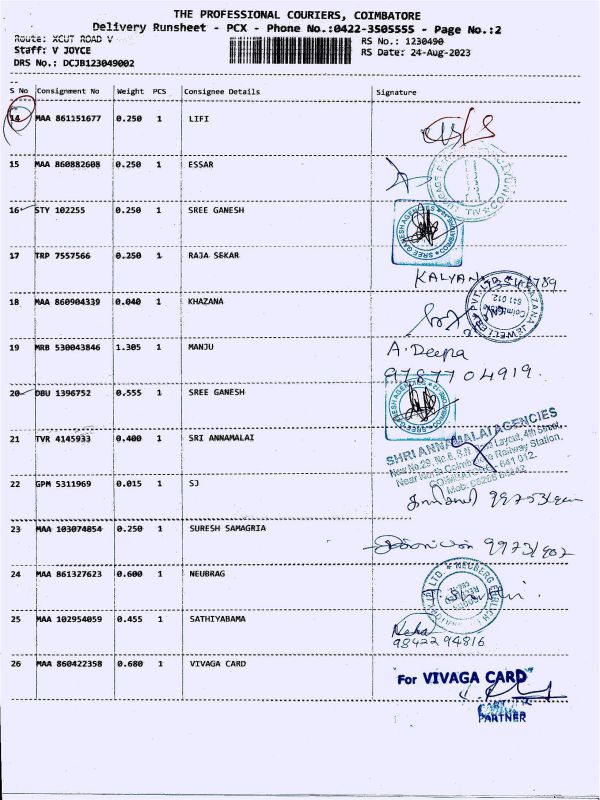 THE PROFESSIONAL COURIERS, COIMBATORE
Delivery Runsheet - PCX - Phone No.:0422-3505555 - Page No.:2
Route: XCUT ROAD V
RS No.: 1230490
Staff: V JOYCE
RS Date: 24-Aug-2023
DRS No.: DCJB123049002
S No Consignment No Weight PCS Consignee Details Signature
14 MAA 861151677 0.250 1 LIFI
15 MAA 860882608 0.250 1 ESSAR
16 STY 102255 0.250 1 SREE GANESH
SREE GANESH AGENCIES
17 TRP 7557566 0.250 1 RAJA SEKAR
KALYAN
18 MAA 860904339 0.040 1 KHAZANA
19 MRB 530043846 1.305 1 MANJU A. Deepa
9787704919.
20 DBU 1396752 0.555 1 SREE GANESH
21 TVR 4145933 0.400 1 SRI ANNAMALAI
SHRI ANNAMALAI AGENCIES
Layout, 4th Street,
Near North Coimbatore Railway Station,
COIMBATORE - 641 012.
22 GPM 5311969 0.015 1 SJ
23 MAA 103074854 0.250 1 SURESH SAMAGRIA
24 MAA 861327623 0.600 1 NEUBRAG
25 MAA 102954059 0.455 1 SATHIYABAMA
Neha
98422 94816
26 MAA 860422358 0.680 1 VIVAGA CARD
For VIVAGA CARD
PARTNER